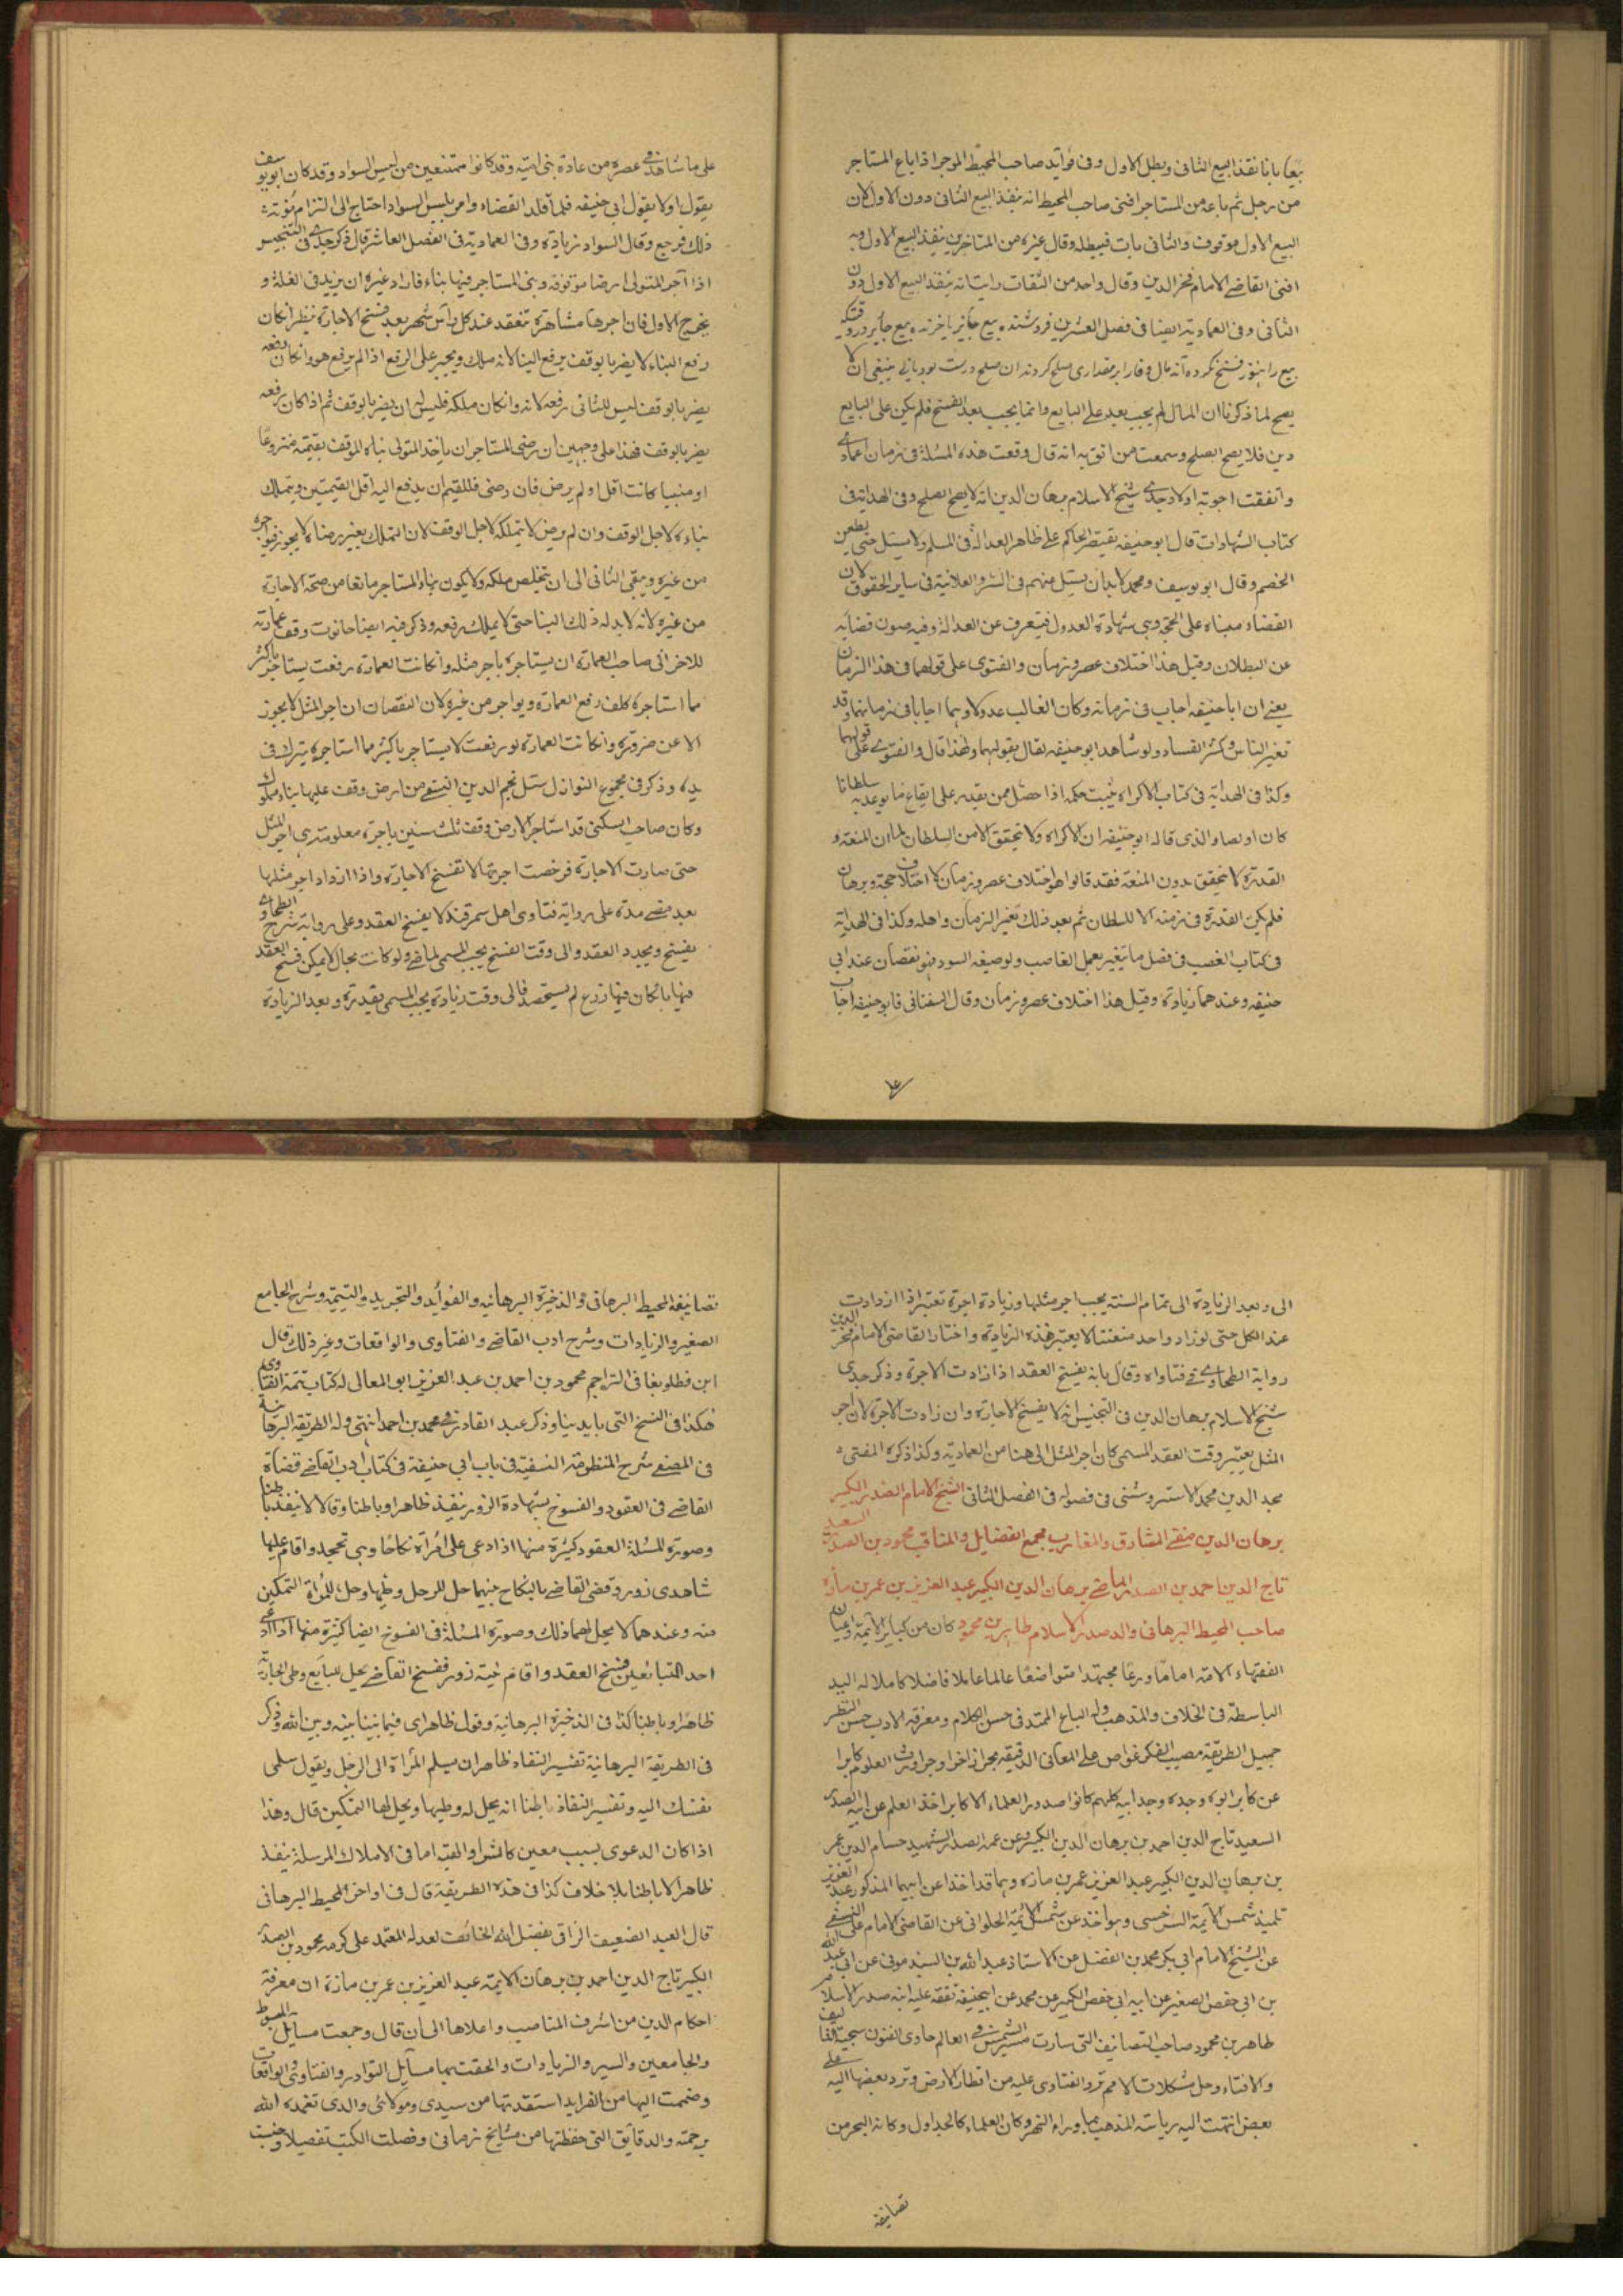 بيعا باتا نفذ البيع الثانى وبطل الاول وفى فوائد صاحب المحيط الموجر اذا باع المستاجر
من رجل ثم باعه من المستاجر افتى صاحب المحيط انه ينفذ البيع الثانى دون الاول لان
البيع الاول موقوف والثانى بات فيبطله وقال غيره من المتاخرين ينفذ البيع الاول وبه
افتى القاضى الامام فخر الدين وقال واحد من الثقات رايت انه ينفذ البيع الاول دون
الثانى وفى العمادية ايضا فى فصل العشرين فروشنده بيع جايز باخرنده بيع جايز
بيع را هنوز فسخ نكرده آنه مال وفا را بر مقدارى صلح كردند ان صلح درست بود يانى ينبغى ان لا
يصح لما ذكرنا ان المال لم يجب بعد على البايع وانما يجب بعد الفسخ فلم يكن على البايع
دين فلا يصح الصلح وسمعت من اثق به انه قال وقعت هذه المسئلة فى زمان
واتفقت اجوبة اولاد جدى شيخ الاسلام برهان الدين انه لا يصح الصلح وفى الهداية فى
كتاب الشهادات قال ابو حنيفه يقتصر الحاكم على ظاهر العدالة فى المسلم ولا يسئل حتى يطعن
الخصم وقال ابو يوسف ومحمد لا بد ان يسئل منهم فى السر والعلانية فى ساير الحقوق لان
القضاء مبناه على الحجة وهى شهادة العدول فيتعرف عن العدالة وفيه صون قضايه
عن البطلان وقيل هذا اختلاف عصر وزمان والفتوى على قولهما فى هذا الزمان
يعنى ان ابا حنيفه اجاب فى زمانه وكان الغالب عدولا وهما اجابا فى زمانهما وقد
تغير الناس وكثر الفساد ولو شاهد ابو حنيفه لقال بقولهما ولهذا قال والفتوى على قولهما
وكذا فى الهداية فى كتاب الاكراه يثبت حكمه اذا حصل ممن يقدر على ايقاع ما يوعد به سلطانا
كان او لصا والذى قاله ابو حنيفه ان الاكراه ولا يتحقق الا من السلطان لما ان المنعة و
القدرة لا تتحقق بدون المنعة فقد قالوا هو اختلاف عصر وزمان لا اختلاف حجة وبرهان
فلم يكن القدرة فى زمنه الا للسلطان ثم بعد ذلك تغير الزمان واهله وكذا فى الهداية
فى كتاب الغصب فى فصل ما يتغير بعمل الغاصب ولو صبغه اسود فهو نقصان عند ابى
حنيفه وعندهما زيادة وقيل هذا اختلاف عصر وزمان وقال السغناقى فابو حنيفه اجاب
على ما شاهد فى عصره من عادة بنى امية وقد كانوا ممتنعين من لبس السواد وقد كان ابو يوسف
يقول اولا بقول ابى حنيفه فلما قلد القضاء وامر بلبس السواد احتاج الى التزام مؤنة
ذلك فرجع وقال السواد زيادة وفى العمادية فى الفصل العاشر قال ذكر جدى فى التجنيس
اذا آجر المتولى ارضا موقوفة وبنى المستاجر فيها بناء فاراد غيره ان يزيد فى الغلة و
يخرج الاول فان اجرها مشاهرة تنعقد عند كل راس شهر بعد فسخ الاجارة ينظر ان كان
رفع البناء لا يضر بالوقف يرفع البنا لانه ملك ويجبر على الرفع اذا لم يرفع هو وان كان رفعه
يضر بالوقف ليس للثانى رفعه لانه وان كان ملكه فليس له ان يضر بالوقف ثم اذا كان رفعه
يضر بالوقف فهذا على وجهين ان رضى المستاجر ان ياخذ المتولى بناه للوقف بقيمته منزوعا
او مبنيا كانت اقل او لم يرض فان رضى فللقيم ان يدفع اليه اقل القيمتين ويتملك
بناءه لاجل الوقف وان لم يرض لا يتملكه لاجل الوقف لان التملك بغير رضا لا يجوز
من غيره ويبقى الثانى الى ان يتخلص ملكه ولا يكون بناء المستاجر مانعا من صحة الاجارة
من غيره لانه لا بد له ذلك البنا حتى لا يملك رفعه وذكر فيه ايضا حانوت وقف عمارته
للاخر ابى صاحب العمارة ان يستاجره باجر مثله وان كانت العمارة رفعت يستاجر باكثر
مما استاجره كلف رفع العمارة ويواجر من غيره لان النقصان ان اجر المثل لا يجوز
الا عن ضرورة وان كانت العمارة لو رفعت لا يستاجر باكثر مما استاجره يترك فى
يده وذكر فى مجموع النوازل سئل نجم الدين النسفى من ارض وقف عليها بناء مملوك
وكان صاحب السكنى قد استاجر الارض وقف ثلث سنين باجرة معلومة هى اجر المثل
حتى صارت الاجارة فرخصت اجرتها لا تفسخ الاجارة واذا ازداد اجر مثلها
بعد مضى مدة على رواية فتاوى اهل سمرقند لا يفسخ العقد وعلى رواية شرح الطحاوى
يفسخ ويجدد العقد والى وقت الفسخ يجب المسمى لما مضى ولو كانت بحال لا يمكن فسخ العقد
فيها بان كان فيها زرع لم يستحصد فالى وقت زيادة يجب المسمى بقدره وبعد الزيادة
الى وبعد الزيادة الى تمام السنة يجب اجر مثلها وزيادة اجرة تعتبر اذا ازدادت
عند الكل حتى لو زاد واحد متعنتا لا يعتبر هذه الزيادة واختار القاضى الامام فخر الدين
رواية الطحاوى فى فتاواه وقال بانه يفسخ العقد اذا زادت الاجرة وذكر جدى
شيخ الاسلام برهان الدين فى التجنيس انه لا يفسخ الاجارة وان زادت الاجرة لان اجر
المثل يعتبر وقت العقد المسمى كان اجر المثل الى هنا من العمادية وكذا ذكره المفتى
مجد الدين محمد الاستروشنى فى فصوله فى الفصل الثانى الشيخ الامام الصدر الكبير
برهان الدين مفتى المشارق والمغارب مجمع الفضايل والمناقب محمود بن الصدر السعيد
تاج الدين احمد بن الصدر الماضى برهان الدين الكبير عبد العزيز بن عمر بن مازه
صاحب المحيط البرهانى والد صدر الاسلام طاهر بن محمود كان من كبار الايمة واعيان
الفقهاء الامة اماما ورعا مجتهدا متواضعا عالما عاملا فاضلا كاملا له اليد
الباسطة فى الخلاف والمذهب وله الباع الممتد فى حسن الكلام ومعرفة الادب حسن النظر
جميل الطريقة مصيب الفكر غواص على المعانى الدقيقة بحرا زاخرا وحوى وارث العلوم كابرا
عن كابر ابوه وجده وجد ابيه كلهم كانوا صدور العلماء الاكابر اخذ العلم عن ابيه الصدر
السعيد تاج الدين احمد بن برهان الدين الكبير وعن عمه الصدر الشهيد حسام الدين عمر
بن برهان الدين الكبير عبد العزيز عمر بن مازه وهما قد اخذا عن ابيهما المذكور عبد العزيز
تلميذ شمس الايمة السرخسى وهو اخذ عن شمس الايمة الحلوانى عن القاضى الامام على النسفى
عن الشيخ الامام ابى بكر محمد بن الفضل عن الاستاذ عبد الله بن السبدمونى عن ابى عبد الله
بن ابى حفص الصغير عن ابيه ابى حفص الكبير عن محمد عن ابى حنيفة تفقه عليه ابنه صدر الاسلام
طاهر بن محمود صاحب التصانيف التى سارت مسير الشمس فى العالم حاوى الفنون
والافتاء وحل مشكلات الامم ترد الفتاوى عليه من اقطار الارض وترد بعضها اليه على
بعض انتهت اليه رياسة المذهب بما وراء النهر وكان العلماء كالجداول وكانه البحر من
تصانيفه
تصانيفه المحيط البرهانى والذخيرة البرهانية والفوائد والتجريد والتتمة وشرح الجامع
الصغير والزيادات وشرح ادب القاضى والفتاوى والواقعات وغير ذلك قال
ابن قطلوبغا فى التراجم محمود بن احمد بن عبد العزيز ابو المعالى له كتاب تتمة الفتاوى
هكذا فى النسخ التى بايدينا وذكر عبد القادر فى محمد بن احمد انتهى وله الطريقة البرهانية
فى المصفى شرح المنظومة النسفية فى باب ابى حنيفة فى كتاب ادب القاضى قضاة
القاضى فى العقود والفسوخ بشهادة الزور ينفذ ظاهرا وباطنا وقالا لا ينفذ باطنا
وصورة المسئلة العقود كثيرة منها اذا ادعى على امراة نكاحا وهى تجحد واقام عليها
شاهدى زور وقضى القاضى بالنكاح بينهما حل للرجل وطيها وحل للمراة التمكين
منه وعندهما لا يحل لهما ذلك وصورة المسئلة فى الفسوخ ايضا كثيرة منها اذا ادعى
احد المتبائعين فسخ العقد واقام بينة زور ففسخ القاضى يحل للبائع وطى الجارية
ظاهرا وباطنا كذا فى الذخيرة البرهانية وقول ظاهرا اى فيما بيننا بينه وبين الله وذكر
فى الطريقة البرهانية تفسير النفاذ ظاهر ان يسلم المراة الى الرجل ويقول سلمى
نفسك اليه وتفسير النفاذ باطنا انه يحل له وطيها ويحل لها التمكين قال وهذا
اذا كان الدعوى بسبب معين كالشراء والهبة اما فى الاملاك المرسلة ينفذ
ظاهرا لا باطنا بلا خلاف كذا فى هذه الطريقة قال فى اواخر المحيط البرهانى
قال العبد الضعيف الراجى بفضل الله الخائف لعدله المعتمد على كرمه محمود بن الصدر
الكبير تاج الدين احمد بن برهان الايمة عبد العزيز بن عمر بن مازة ان معرفة
احكام الدين من اشرف المناصب واعلاها الى ان قال وجمعت مسائل المبسوط
والجامعين والسير والزيادات والحقت بها مسائل النوادر والفتاوى والواقعات
وضممت اليها من الفرايد استفدتها من سيدى ومولائى والدى تغمده الله
برحمته والدقايق التى حفظتها من مشايخ زمانى وفصلت الكتب تفصيلا وجنست